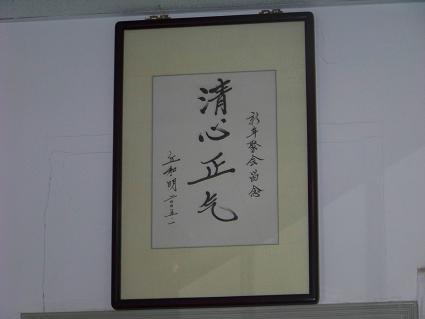 新年聚会留念
清心正气
二〇〇五.一